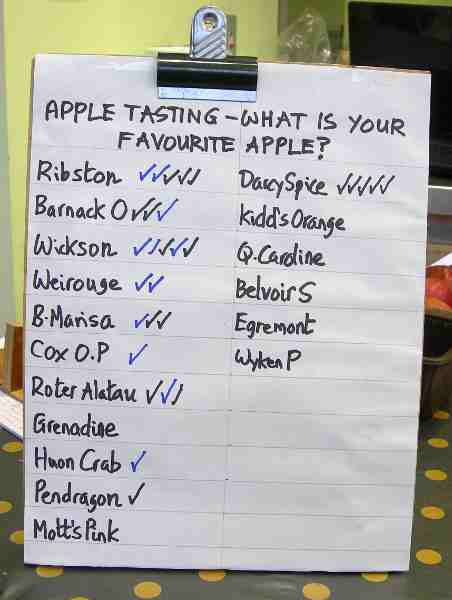 APPLE TASTING - WHAT IS YOUR
FAVOURITE APPLE?
Ribston ✓✓✓✓✓
Barnack O ✓✓✓
Wickson ✓✓✓✓✓
Weirouge ✓✓
B. Marisa ✓✓✓
Cox O.P ✓
Roter Alatau ✓✓✓
Grenadine
Huon Crab ✓
Pendragon ✓
Mott's Pink
Darcy Spice ✓✓✓✓✓
Kidd's Orange
Q. Caroline
Belvoir S
Egremont
Wyken P